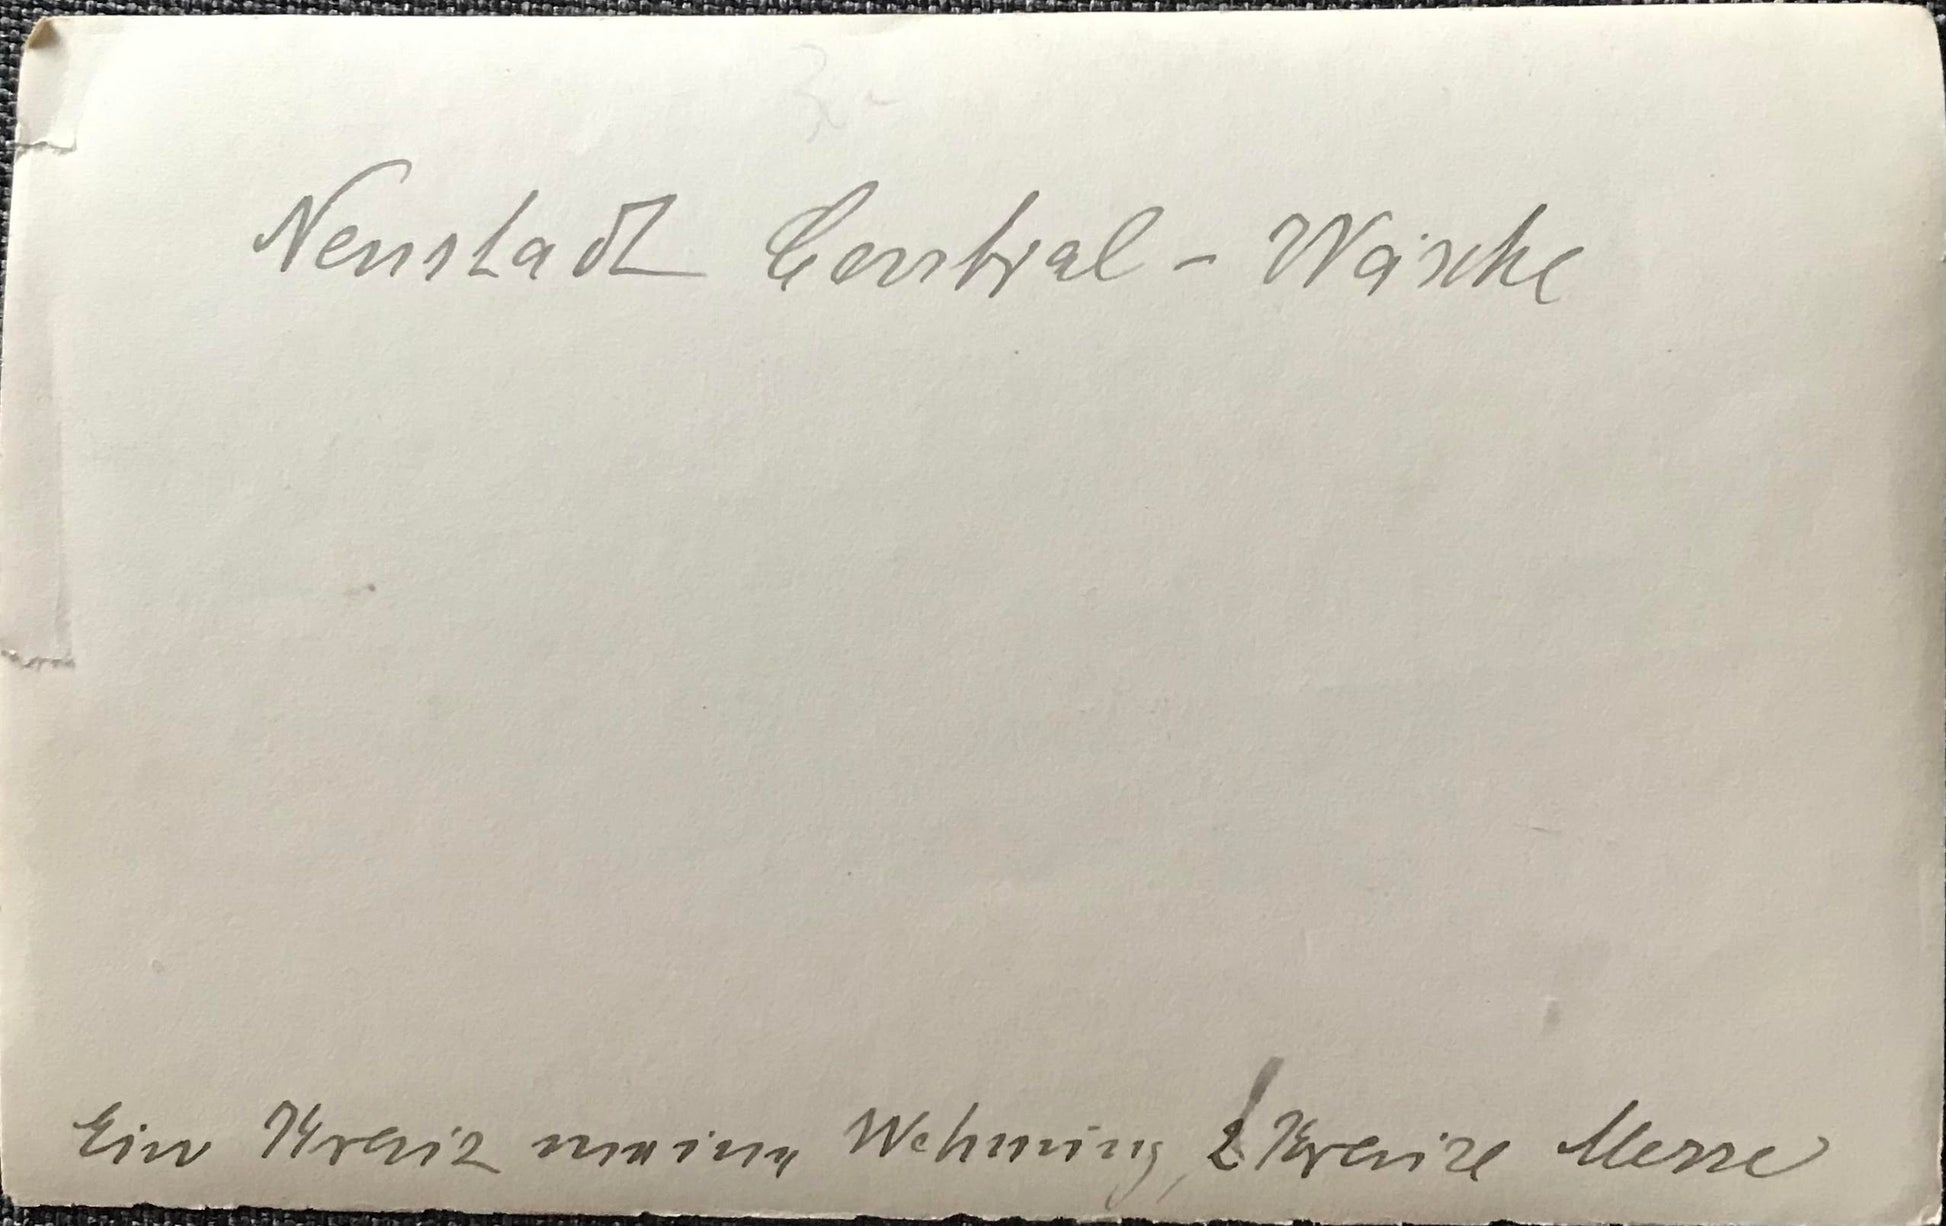 Neustadt Central - Wäsche
Ein Kreuz meine Wohnung, 2 Kreuze Messe